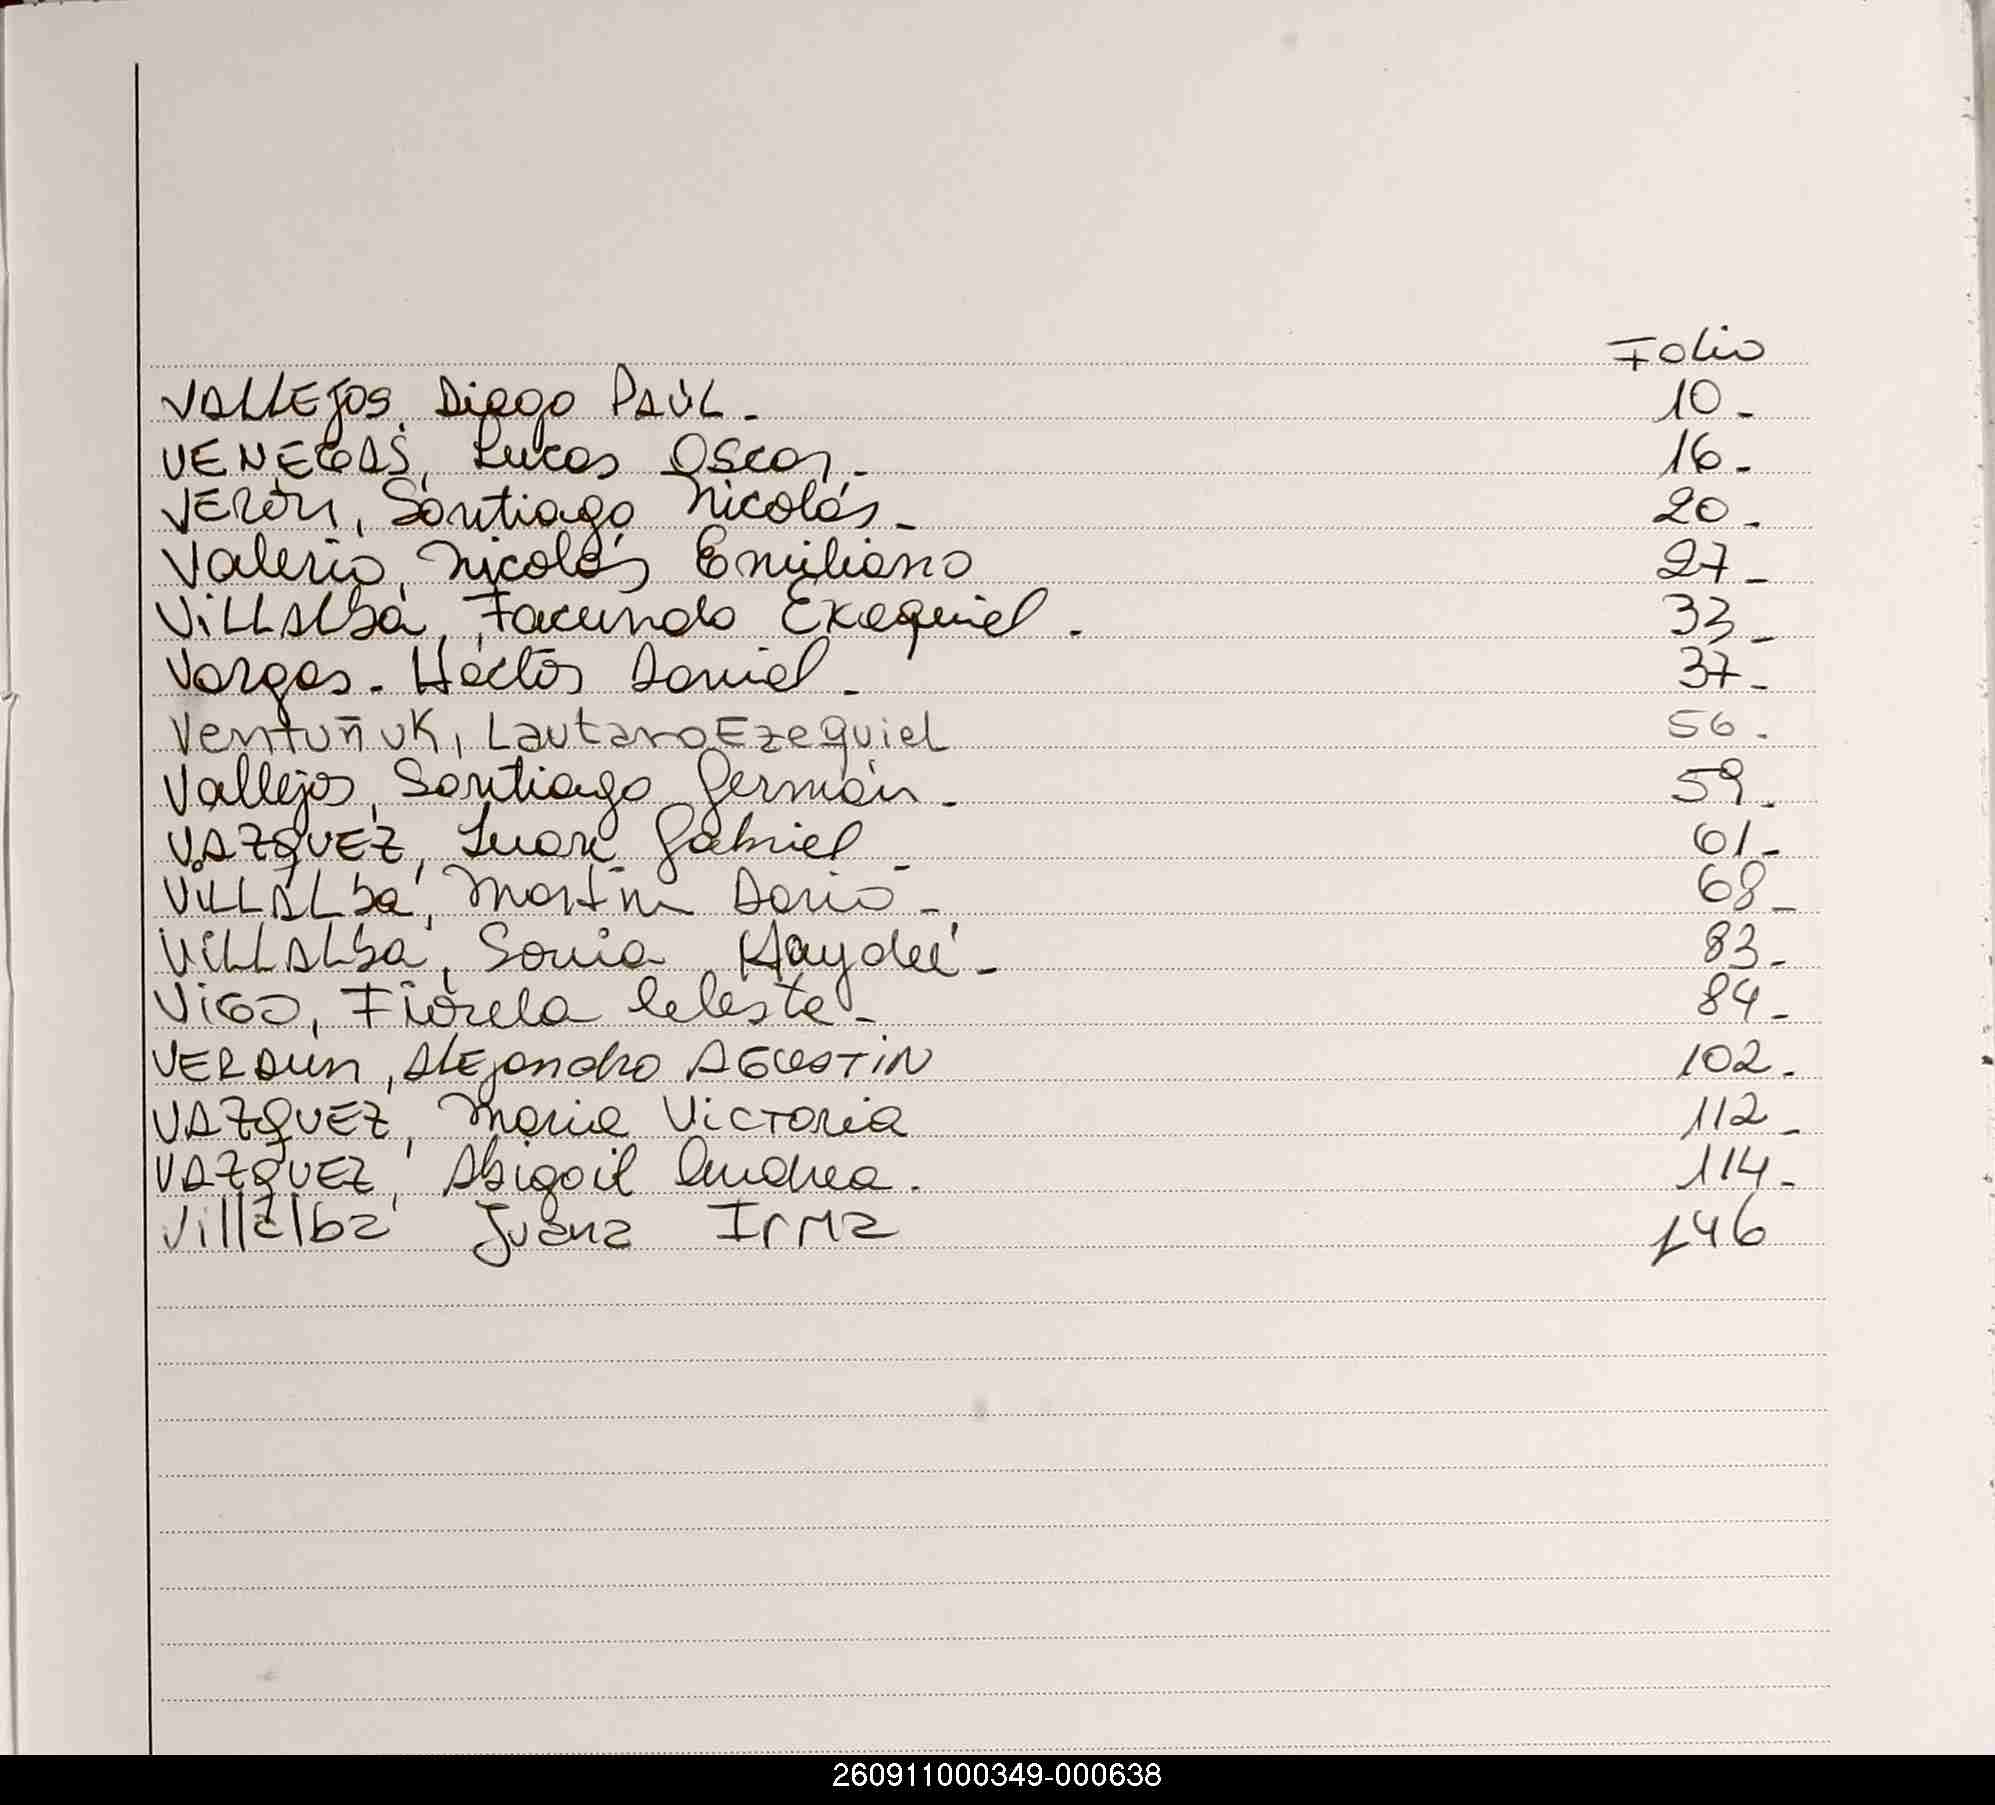 Folio
VALLEJOS, Diego PAÚL - 10 -
VENEGAS, Lucas Oscar - 16 -
VERÓN, Santiago Nicolás - 20 -
Valerio, Nicolás Emiliano 27 -
VILLALBA, Facundo Exequiel - 33 -
Vargas - Héctor Daniel - 37 -
Ventuñuk, Lautaro Ezequiel 56 -
Vallejos, Santiago Germán - 59 -
VAZQUEZ, Gabriel - 61 -
VILLALBA, Martin Dario - 68 -
VILLALBA, Sonia Haydeé - 83 -
VIGO, Fiorela Celeste - 84 -
VERDUN, ALEjandro AGUSTIN 102 -
VAZQUEZ, Maria Victoria 112 -
VAZQUEZ, Abigail Andrea. 114 -
Villalba Juana Irma 146
260911000349-000638